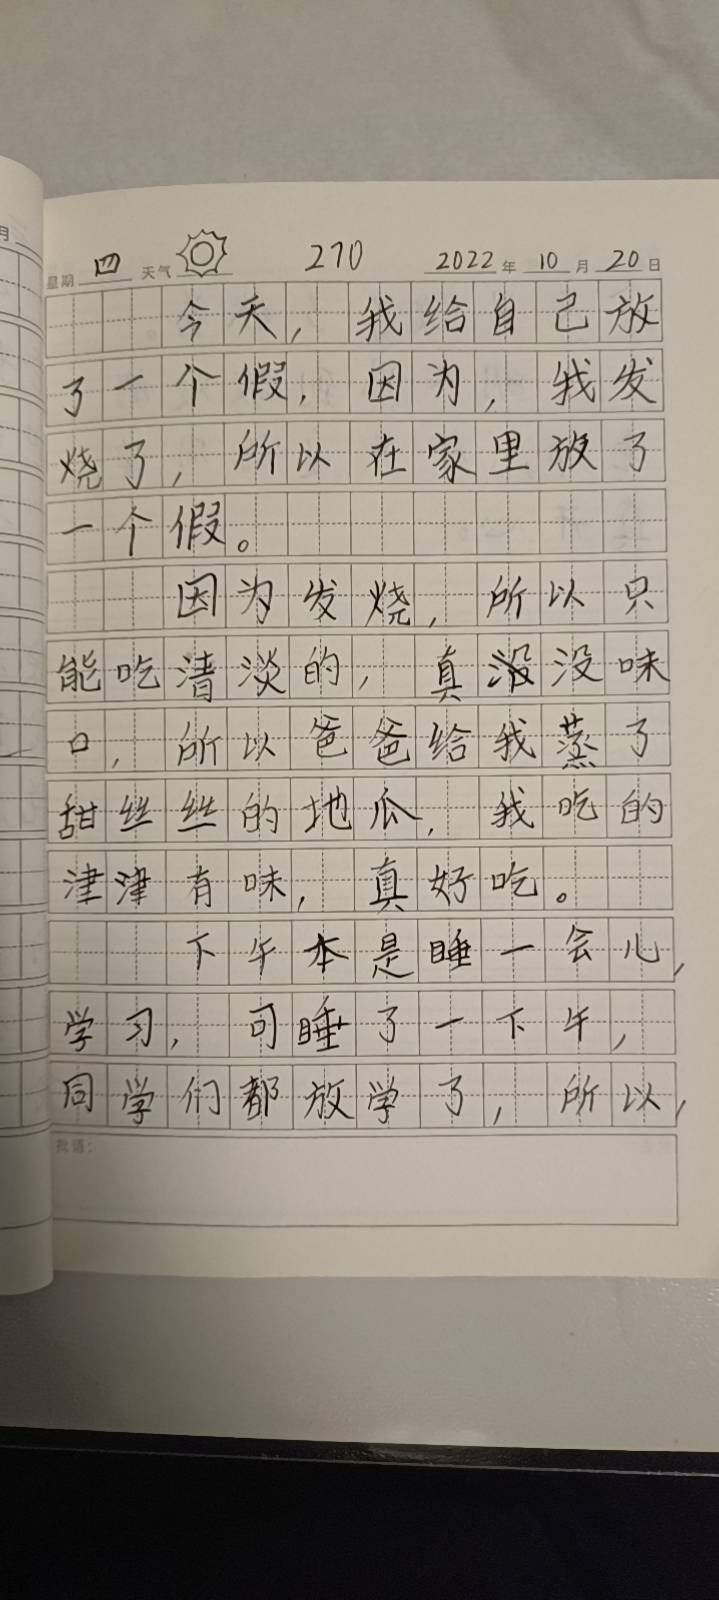 月
星期 四 天气 270 2022 年 10 月 20 日
今天，我给自己放
了一个假，因为，我发
烧了，所以在家里放了
一个假。
因为发烧，所以只
能吃清淡的，真没没味
口，所以爸爸给我蒸了
甜丝丝的地瓜，我吃的
津津有味，真好吃。
下午本是睡一会儿，
学习，可睡了一下午，
同学们都放学了，所以，
批语：